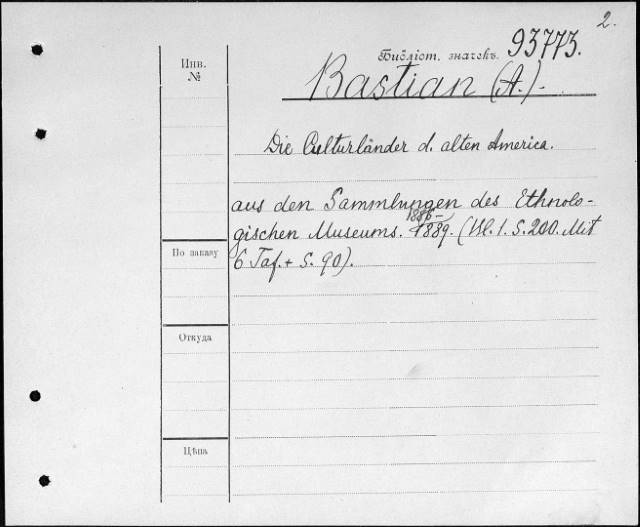 2.
Библіот. значекъ. 93773.
Инв.
№
Bastian (A.).
Die Culturländer d. alten America.
aus den Sammlungen des Ethnolo-
1886-
gischen Museums. 1889. (Bl. 1. S. 200. Mit
6 Taf. + S. 90).
По заказу
Откуда
Цѣна